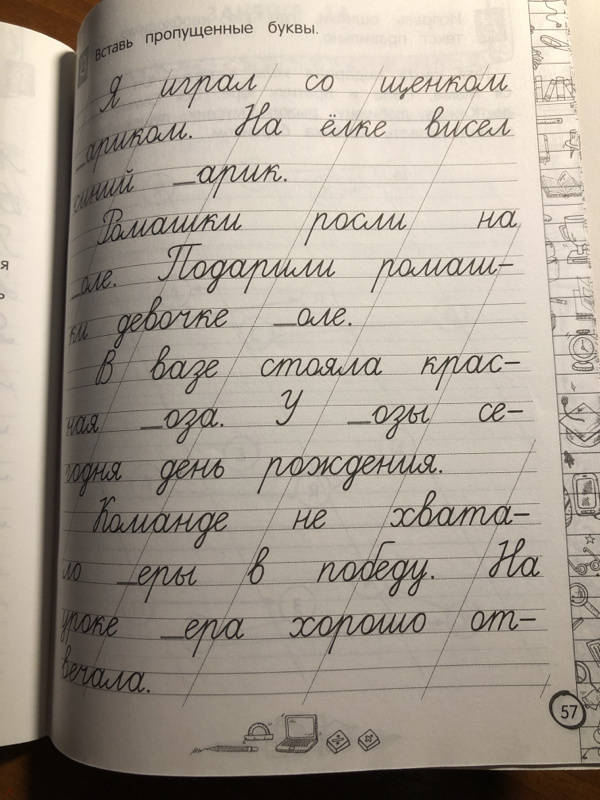 Вставь пропущенные буквы.
Я играл со щенком
_ариком. На ёлке висел
синий _арик.
Ромашки росли на
_оле. Подарили ромаш-
ки девочке _оле.
В вазе стояла крас-
ная _оза. У _озы се-
годня день рождения.
Команде не хвата-
ло _еры в победу. На
уроке _ера хорошо от-
вечала.
57